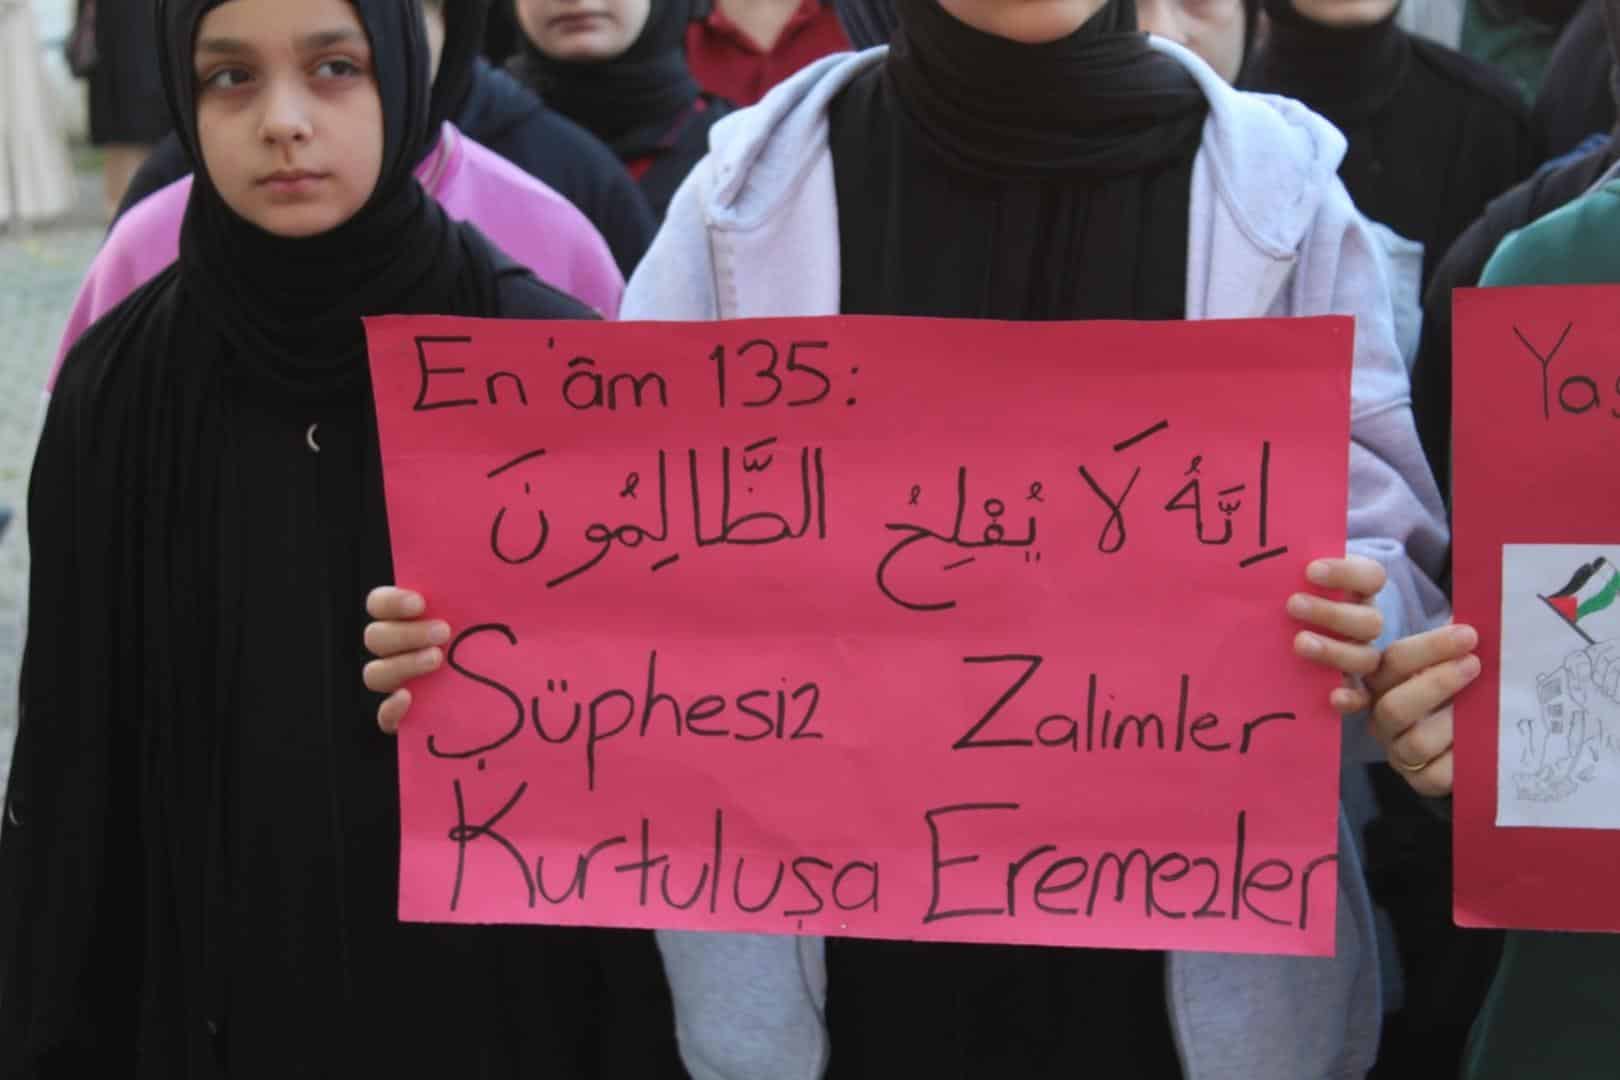 En'âm 135:
إِنَّهُ لَا يُفْلِحُ الظَّالِمُونَ
Şüphesiz Zalimler
Kurtuluşa Eremezler